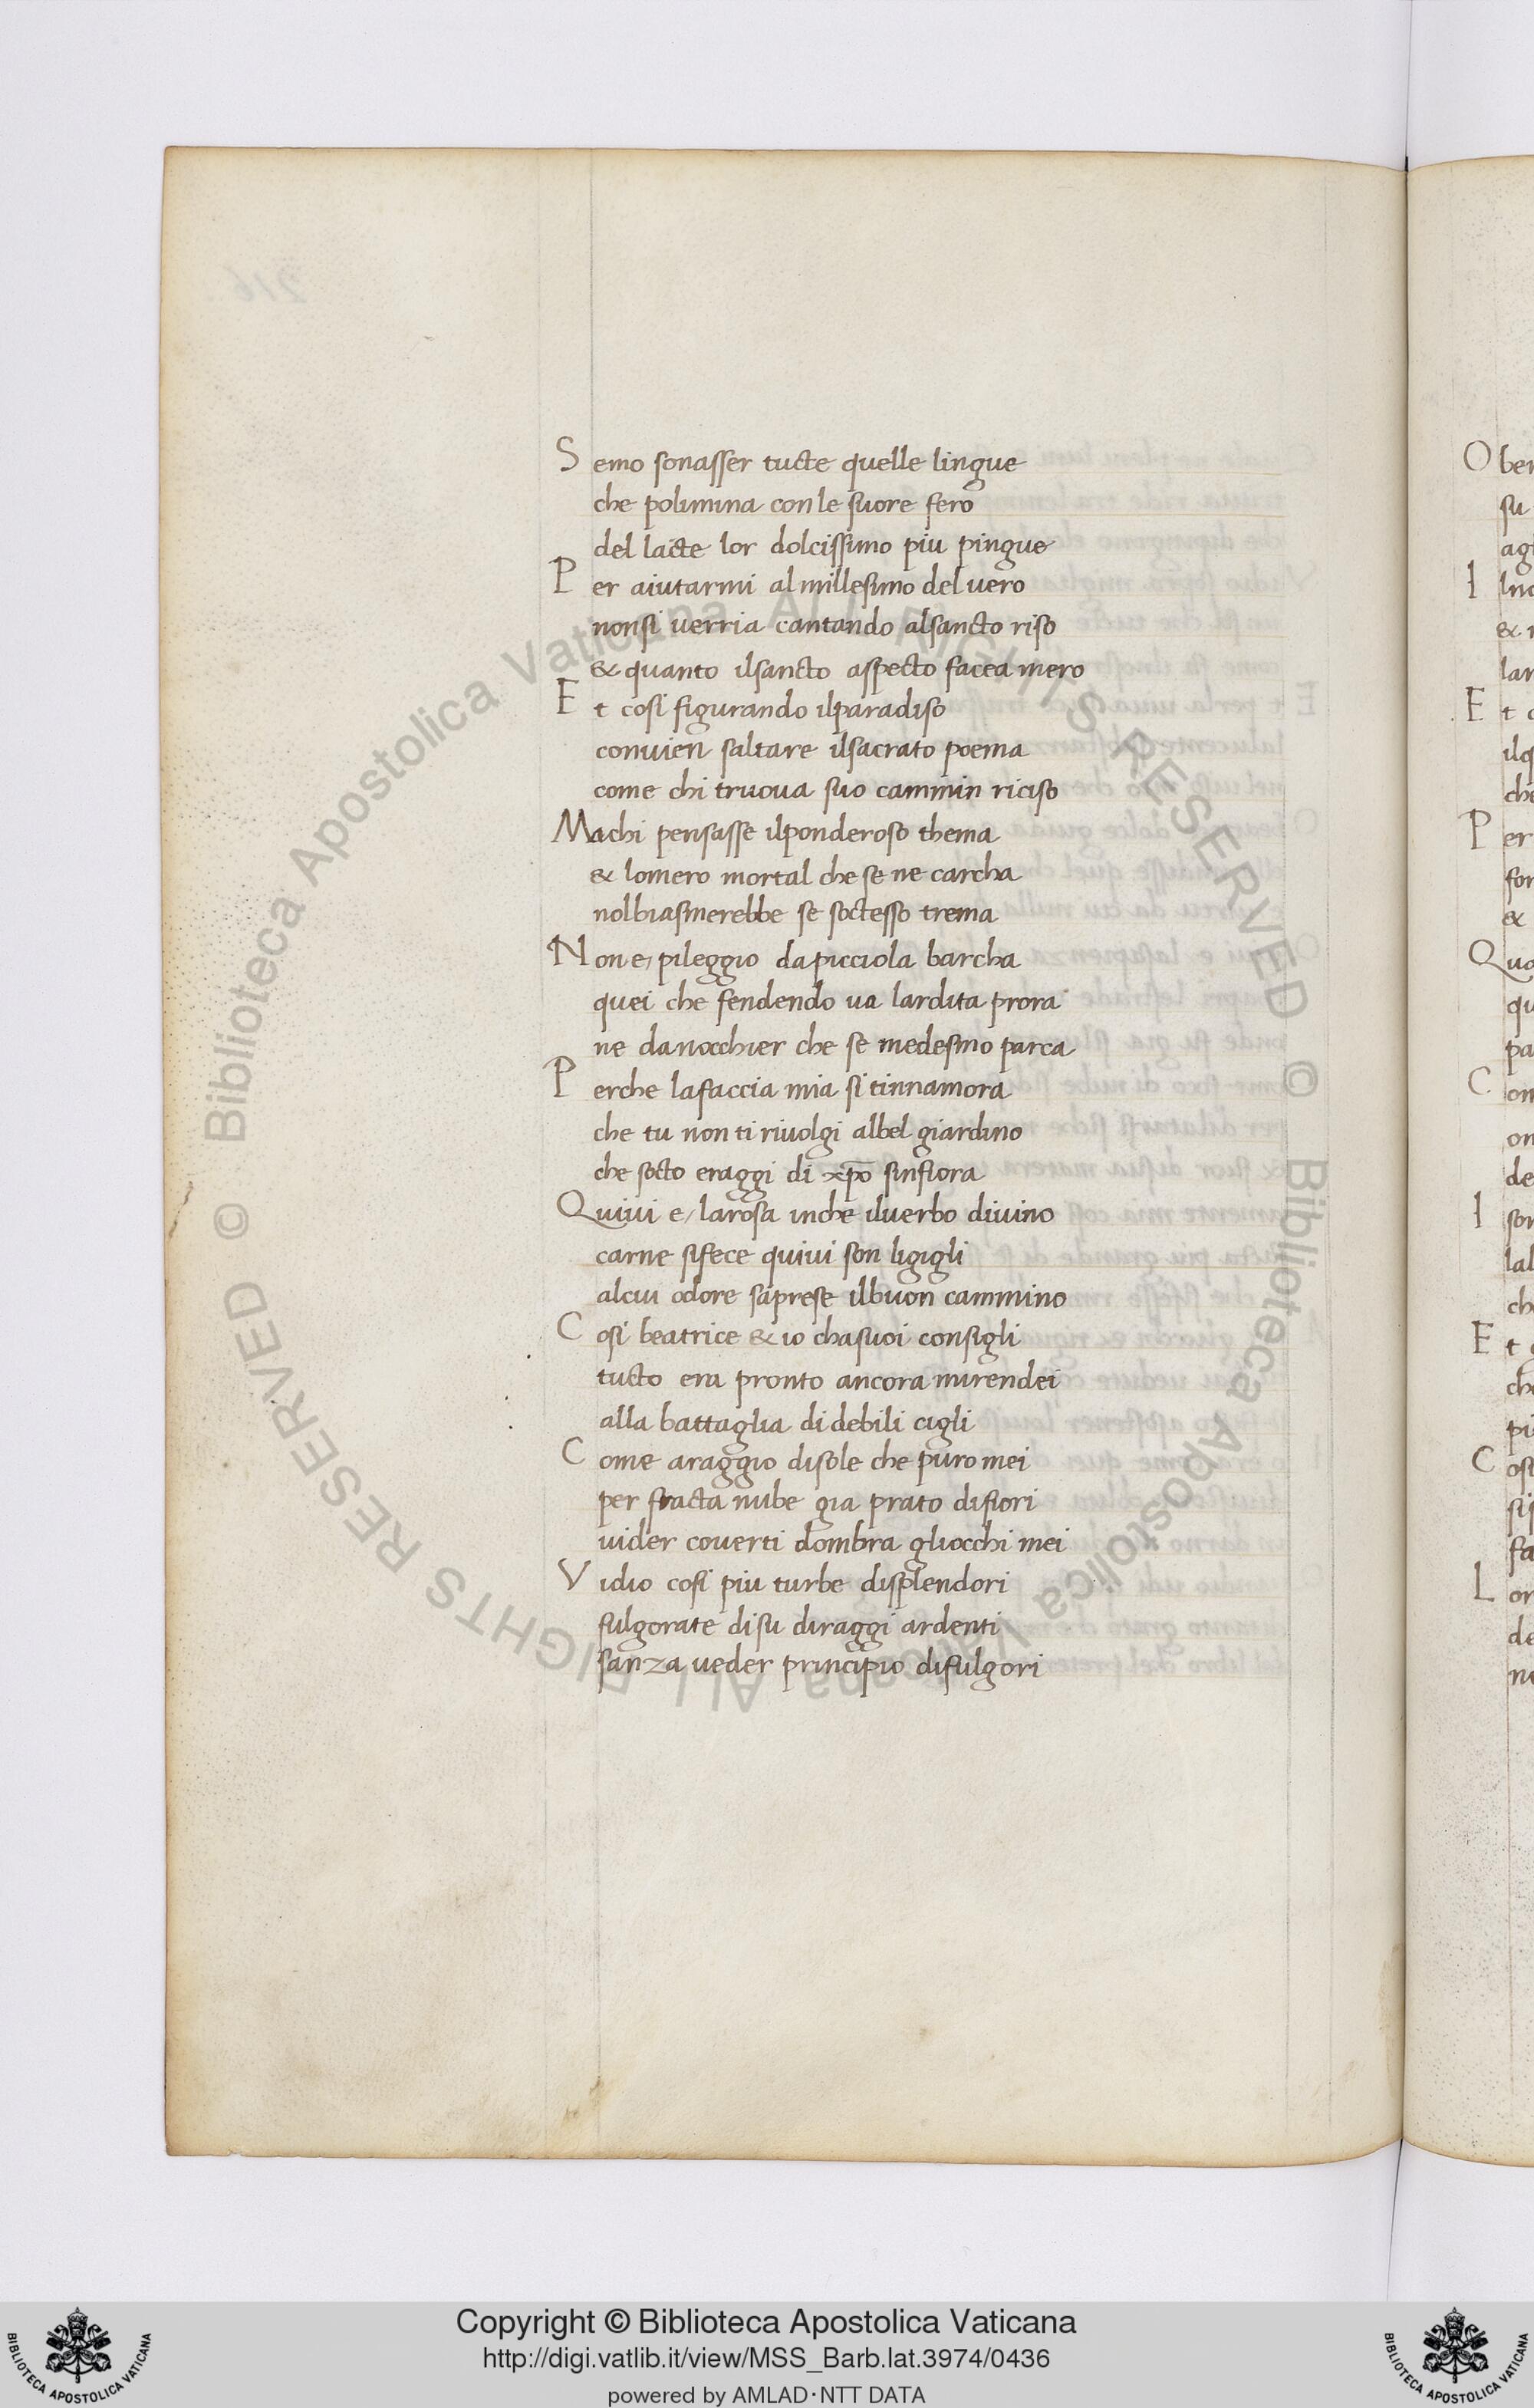 Semo sonasser tucte quelle lingue
che polimina con le suore fero
del lacte lor dolcissimo piu pingue
Per aiutarmi al millesimo del uero
nonsi uerria cantando alsancto riso
& quanto ilsancto aspecto facea mero
Et cosi figurando ilparadiso
conuien saltare ilsacrato poema
come chi truoua suo cammin riciso
Machi pensasse ilponderoso thema
& lomero mortal che se ne carcha
nolbiasmerebbe se soctesso trema
Non e, pileggio da picciola barcha
quei che fendendo ua lardita prora
ne danocchier che se medesmo parca
Perche lafaccia mia si tinnamora
che tu non ti riuolgi albel giardino
che socto eraggi di xpo sinfiora
Quiui e, larosa inche iluerbo diuino
carne sifece quiui son ligigli
alcui odore saprese ilbuon cammino
Cosi beatrice & io chasuoi consigli
tucto era pronto ancora mirendei
alla battaglia di debili cigli
Come araggio disole che puro mei
per fracta nube gia prato difiori
uider couerti dombra gliocchi mei
Vidio cosi piu turbe displendori
fulgorate disu diraggi ardenti
sanza ueder principio difulgori
Copyright © Biblioteca Apostolica Vaticana
http://digi.vatlib.it/view/MSS_Barb.lat.3974/0436
powered by AMLAD·NTT DATA